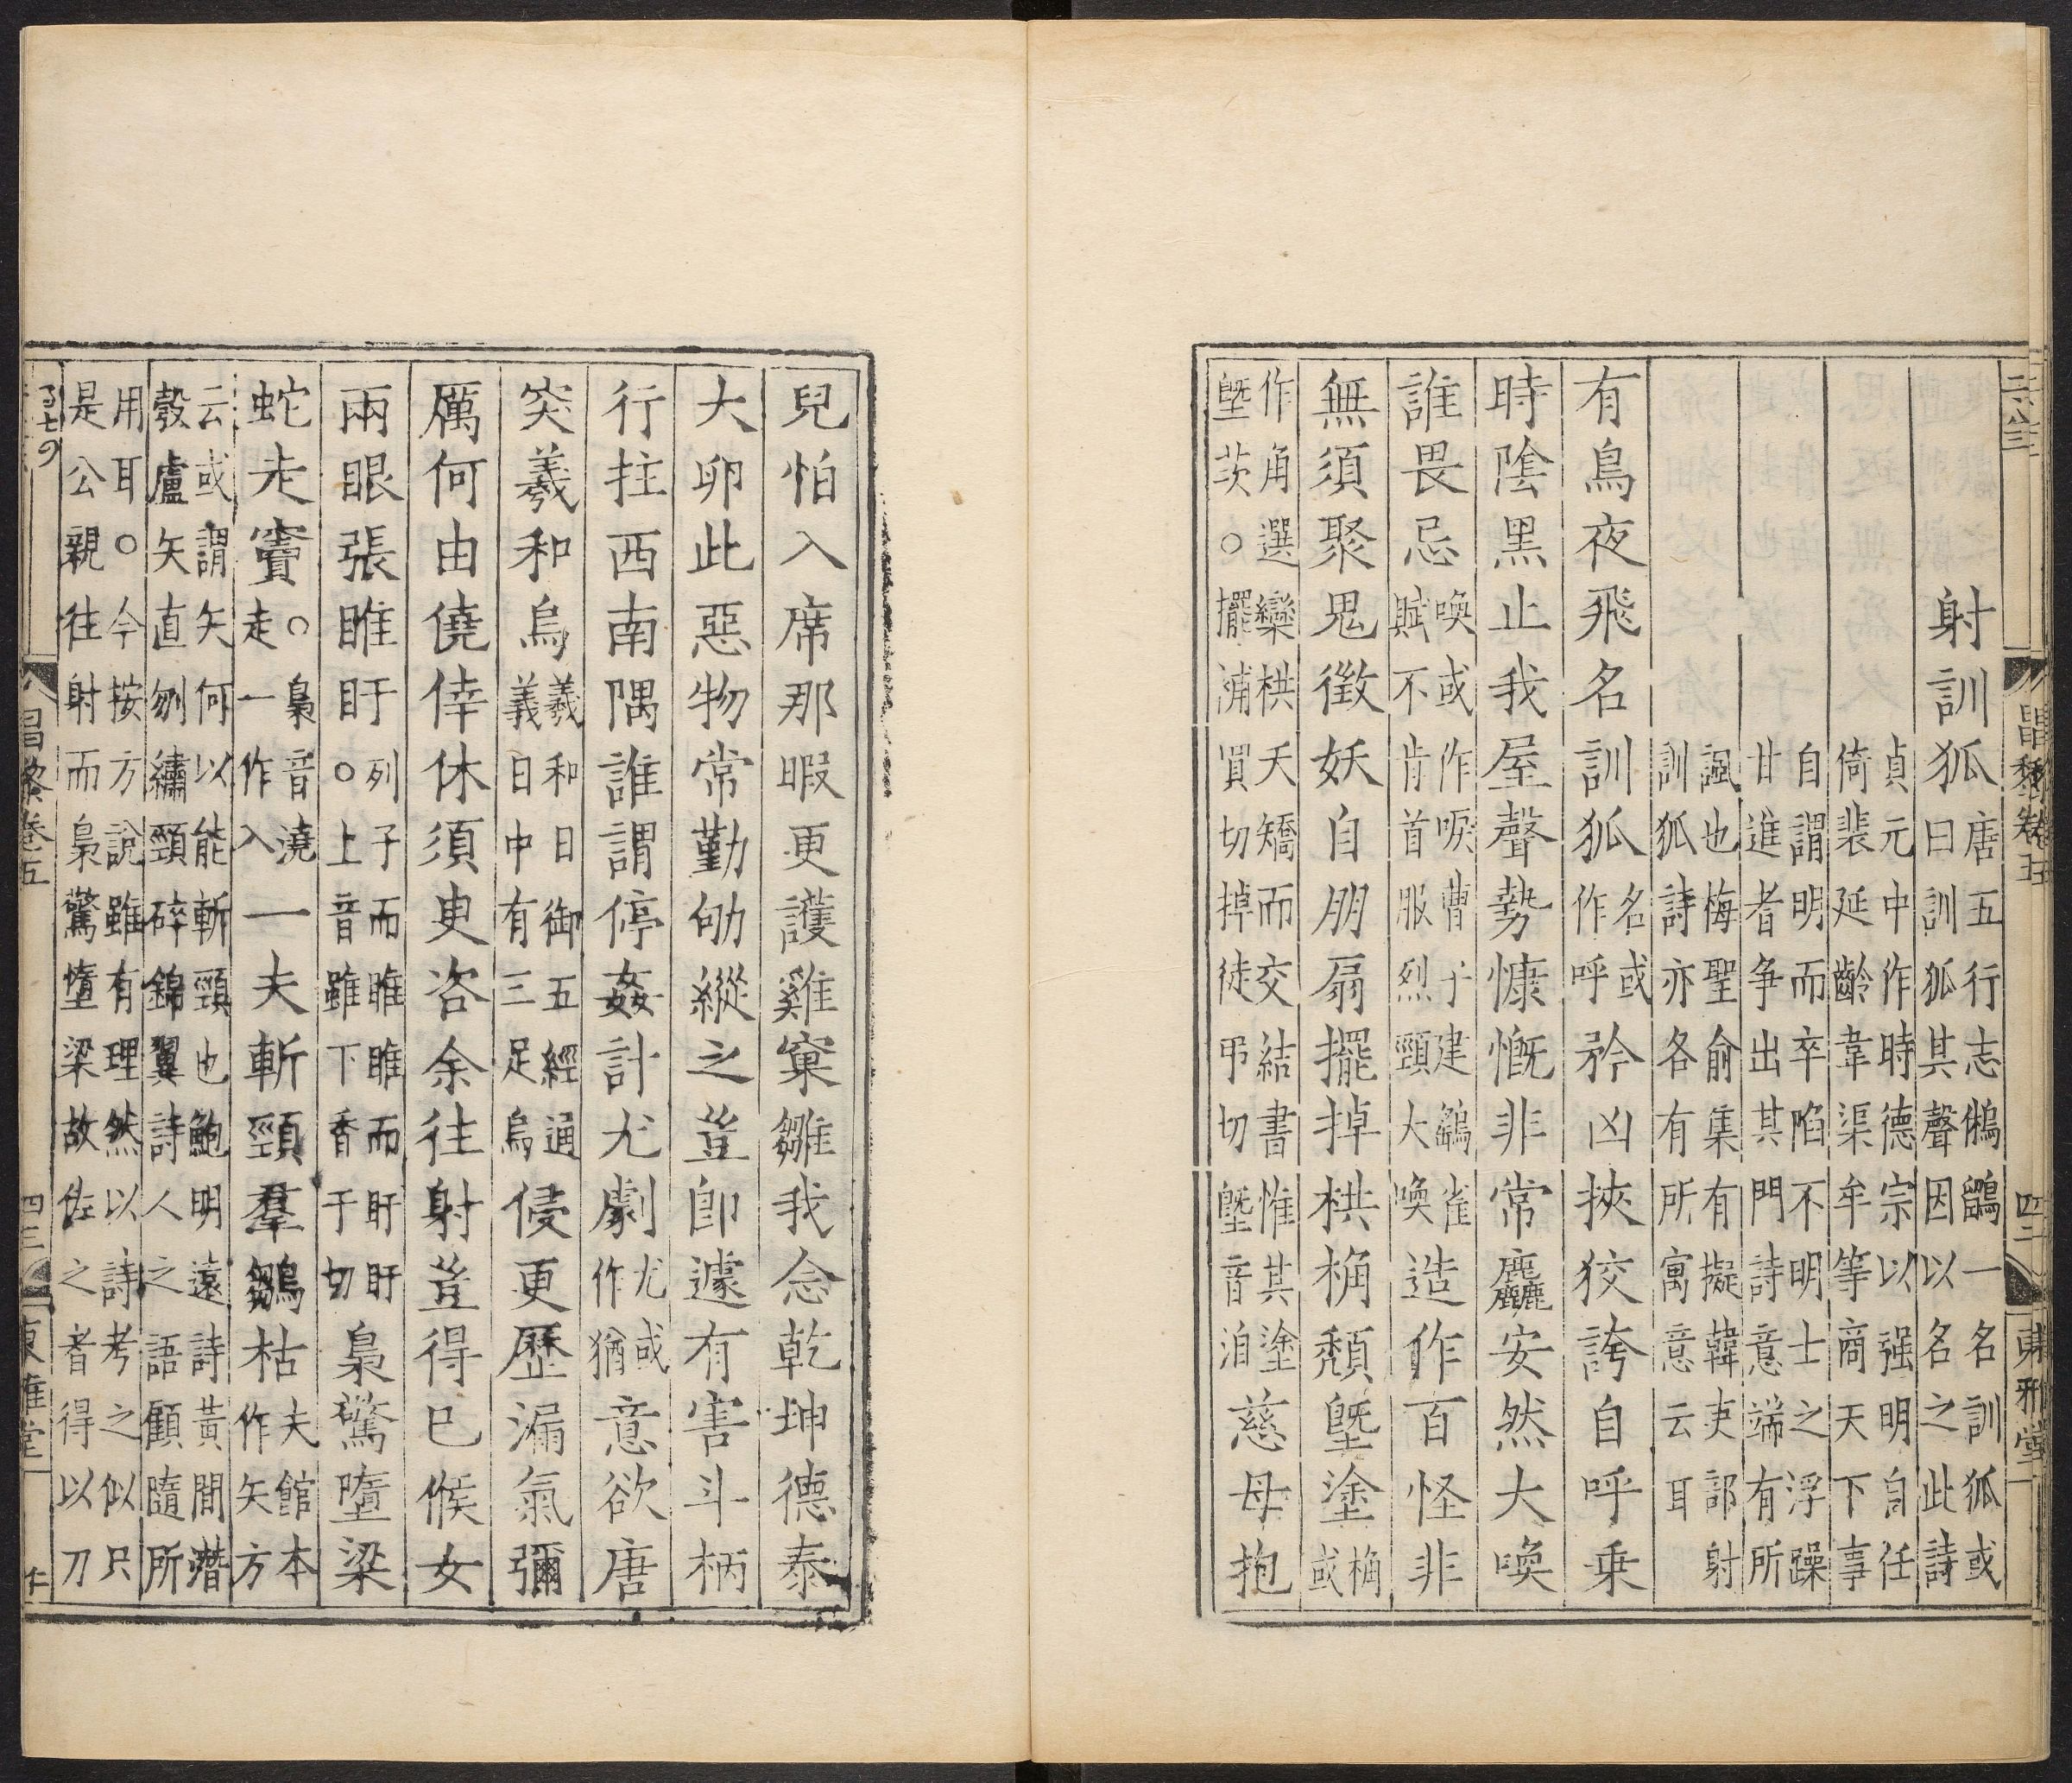 昌黎卷五 四二 東雅堂
射訓狐 唐五行志鵂鶹一名訓狐或
曰訓狐其聲因以名之此詩
貞元中作時德宗以强明自任
倚裴延齡韋渠牟等商天下事
自謂明而卒陷不明士之浮躁
甘進者争出其門詩意端有所
諷也梅聖俞集有擬韓吏部射
訓狐詩亦各有所寓意云耳
有鳥夜飛名訓狐 名或作呼 矜凶挾狡誇自呼乗
時陰黑止我屋聲勢慷慨非常麤安然大喚
誰畏忌 喚或作唳曹子建鷂雀賦不肯首服烈頸大喚 造作百怪非
無須聚鬼徵妖自朋扇擺掉栱桷頹塈塗 桷或
作角選欒栱夭矯而交結書惟其塗塈茨○擺浦買切掉徒弔切塈音洎 慈母抱
兒怕入席那暇更護雞窠雛我念乾坤德泰
大卵此惡物常勤劬縱之豈即遽有害斗柄
行拄西南隅誰謂停姦計尤劇 尤或作猶 意欲唐
突羲和烏 羲和日御五經通義日中有三足烏 侵更歷漏氣彌
厲何由僥倖休須臾咨余往射豈得已候女
兩眼張睢盱 列子而睢睢而盱盱○上音雖下香于切 梟驚墮梁
蛇走竇 ○梟音澆走一作入 一夫斬頸羣雛枯 夫館本作矢方
云或謂矢何以能斬頸也鮑明遠詩黃間潛
彀盧矢直刎繡頸碎錦翼詩人之語顧隨所
用耳○今按方說雖有理然以詩考之似只
是公親往射而梟驚墮梁故佐之者得以刀
昌黎卷五 四三 東雅堂